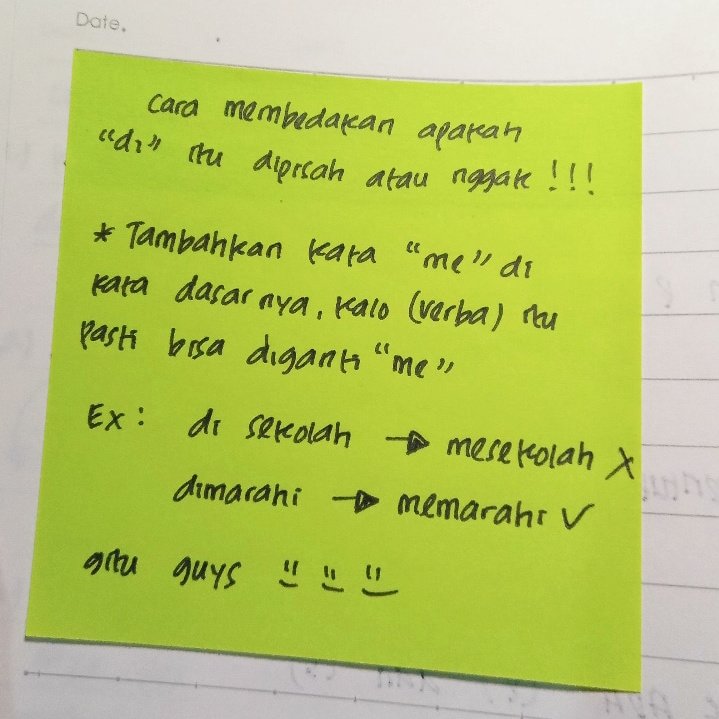 Date.
cara membedakan apakah
"di" itu dipisah atau nggak !!!
* Tambahkan kata "me" di
kata dasarnya, kalo (verba) itu
pasti bisa diganti "me"
Ex : di sekolah → mesekolah X
dimarahi → memarahi ✓
gitu guys